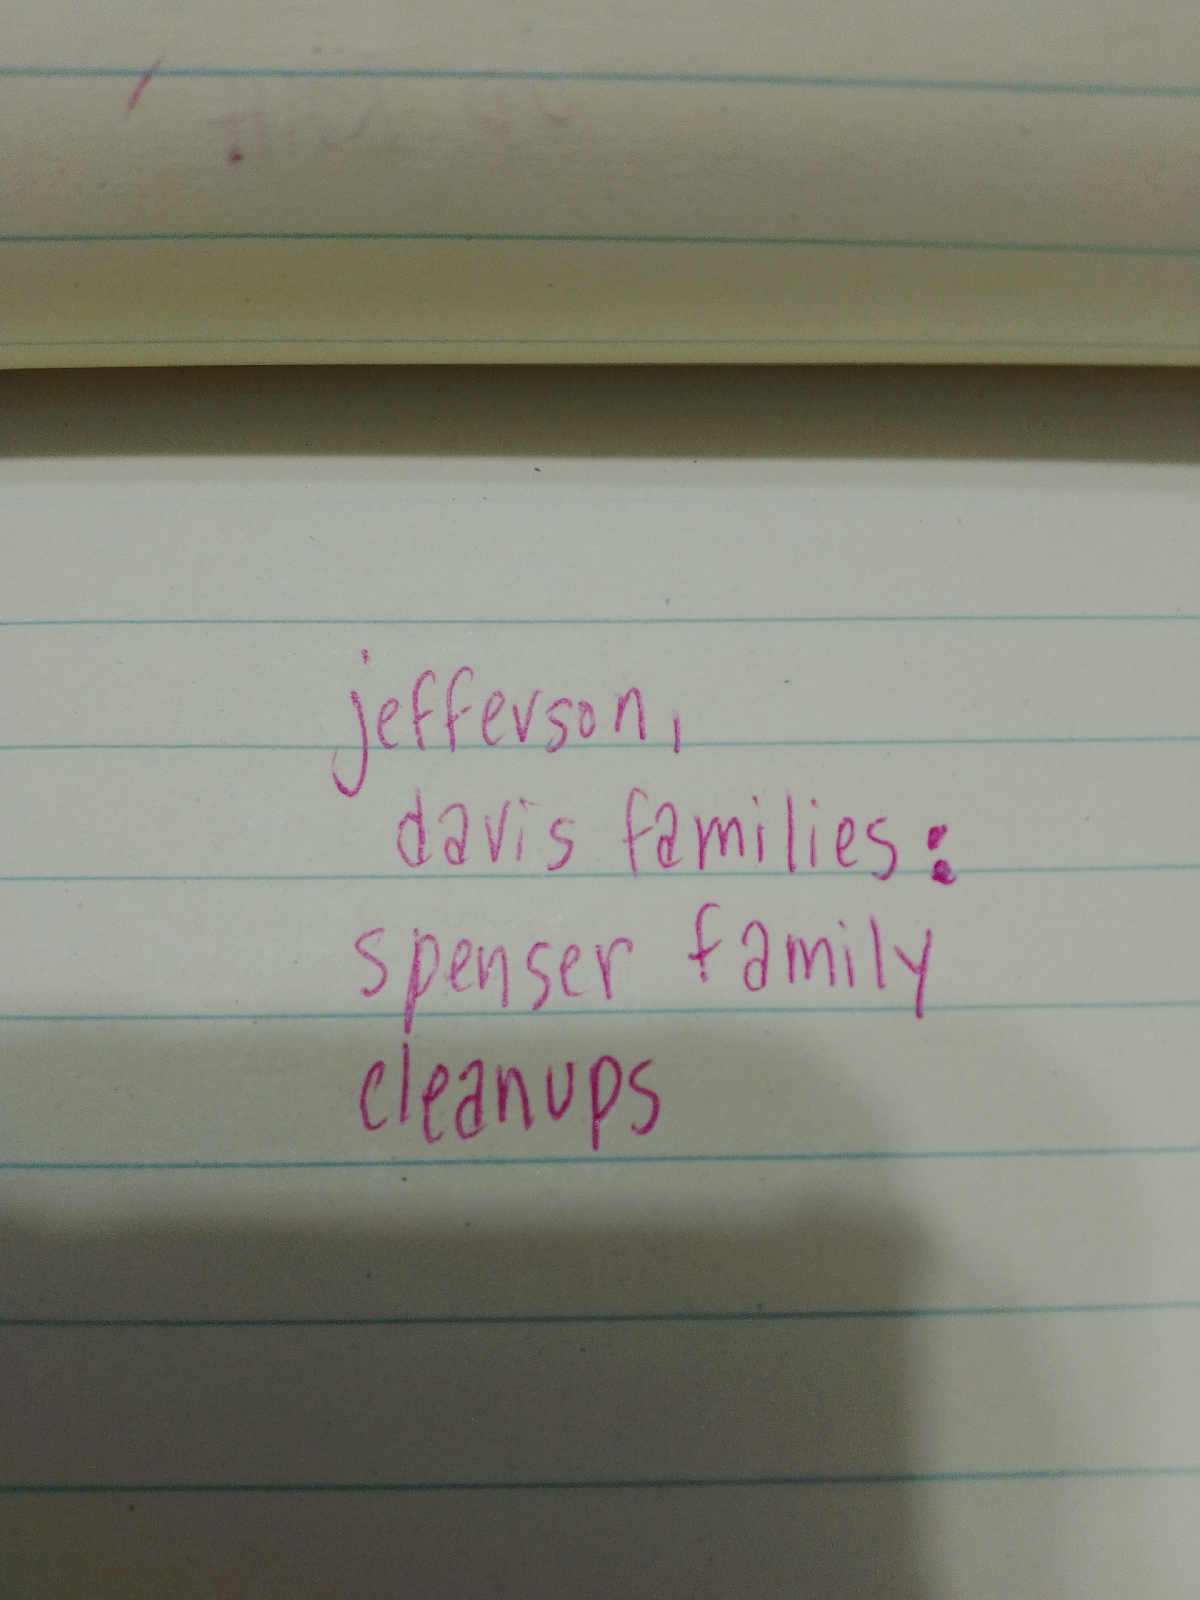 jefferson,
davis families:
spenser family
cleanups